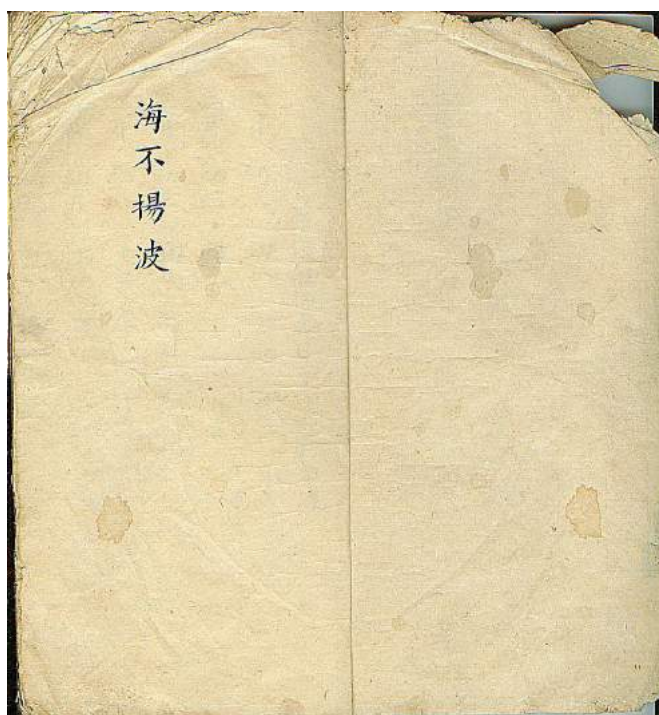 海不揚波